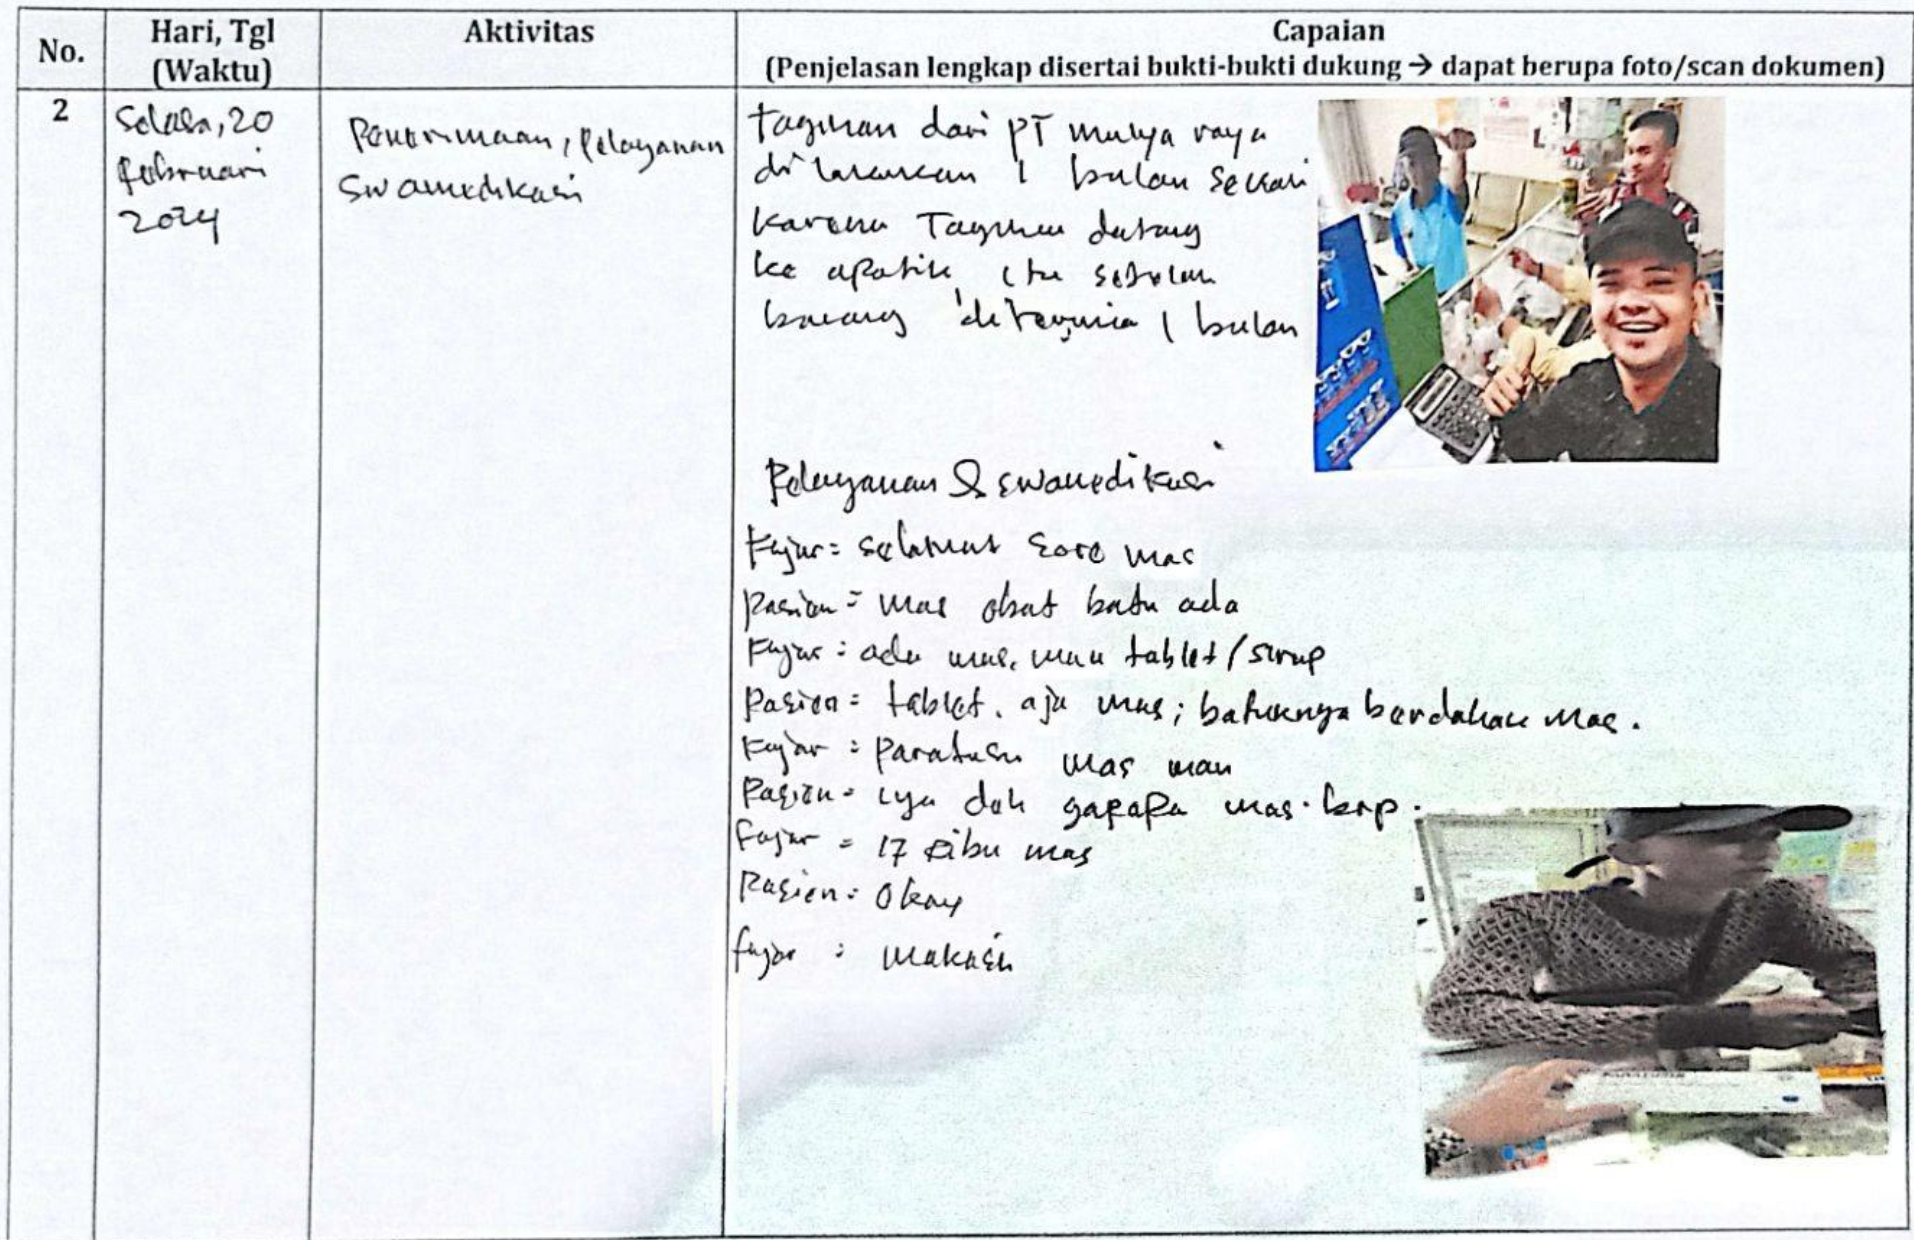 No.
Hari, Tgl
(Waktu)
Aktivitas
Capaian
(Penjelasan lengkap disertai bukti-bukti dukung → dapat berupa foto/scan dokumen)
2
Selasa, 20
Februari
2024
Penerimaan, Pelayanan
Swamedikasi
Tagihan dari PT mulya raya
di lakukan 1 bulan sekali
karena Tagihan datang
ke apotik itu setelah
barang diterima 1 bulan
Pelayanan & swamedikasi
Fajar = selamat sore mas
Pasien = mas obat batu ada
Fajar : ada mas, mau tablet/sirup
Pasien = tablet. aja mas; batuknya berdahak mas.
Fajar : Paratusin mas mau
Pasien = iya deh gapapa mas. brp.
Fajar = 17 ribu mas
Pasien : Okay
Fajar : makasih